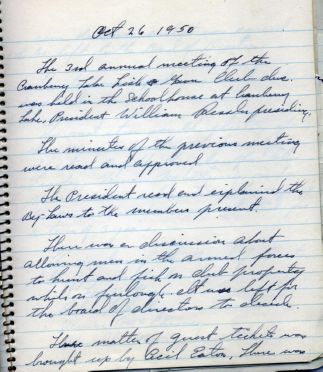 Oct 26 1950
The 3rd annual meeting of the
Cranberry Lake Fish & Game Club Inc.
was held in the Schoolhouse at Cranberry
Lake, President William Ressler presiding.
The minutes of the previous meeting
were read and approved
The President read and explained the
By-Laws to the members present.
There was a discussion about
allowing men in the armed forces
to hunt and fish on club property
while on furlough. It was left for
the board of directors to decide.
The matter of guest tickets was
brought up by Cecil Eaton, there was